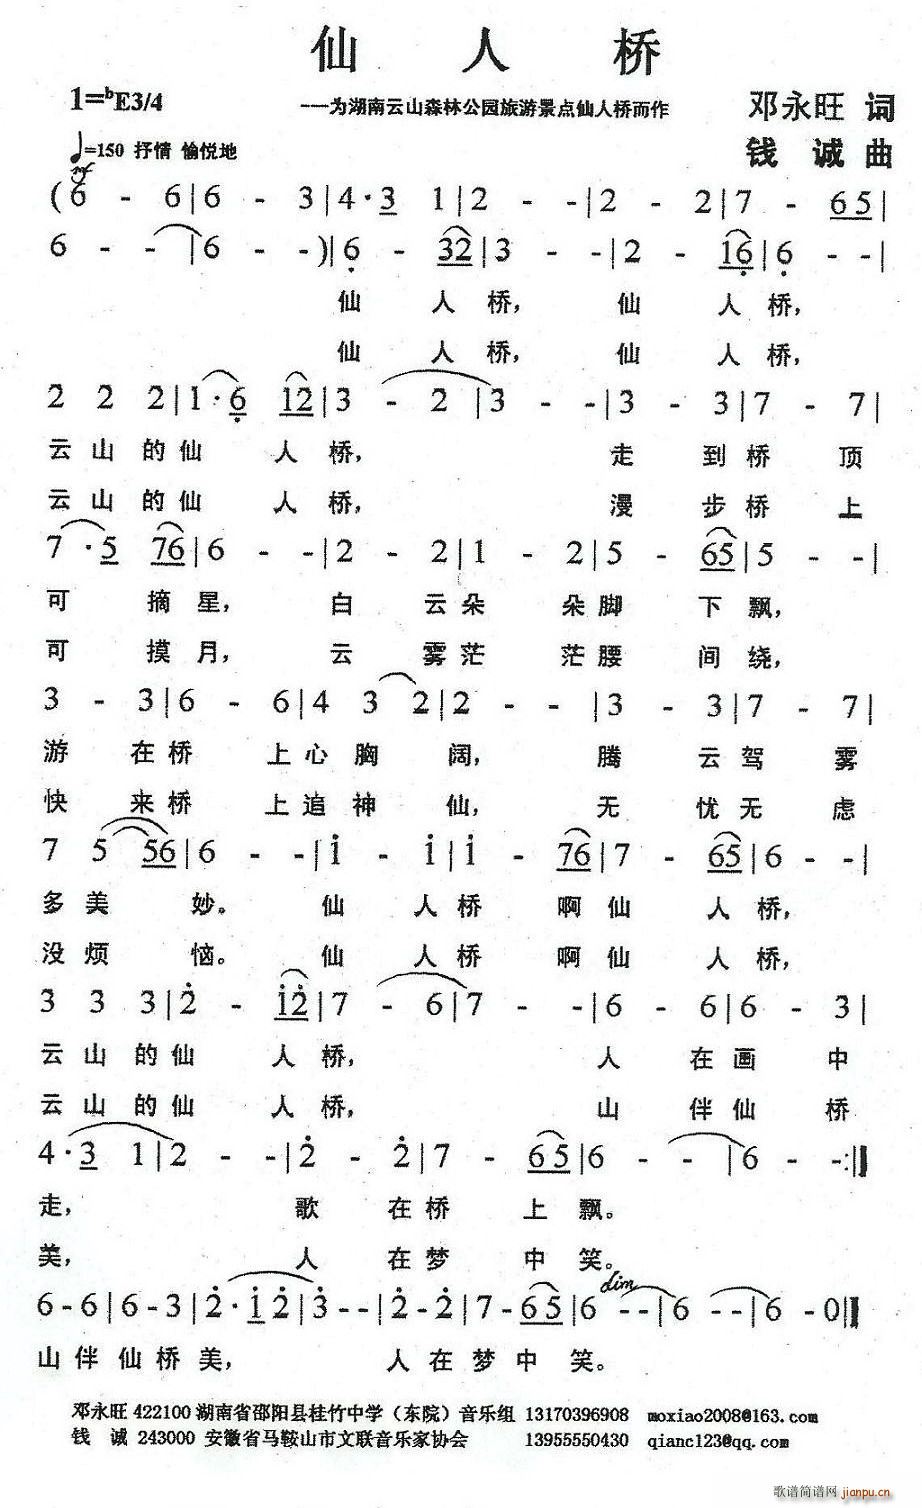 仙人桥
1=ᵇE3/4
——为湖南云山森林公园旅游景点仙人桥而作
邓永旺 词
♩=150 抒情 愉悦地
钱 诚 曲
mf
(6 - 6|6 - 3|4·3 1|2 - -|2 - 2|7 - 65|
6 - -|6 - -)|6 - 32|3 - -|2 - 16|6 - -|
仙 人 桥, 仙 人 桥,
仙 人 桥, 仙 人 桥,
2 2 2|1·6 12|3 - 2|3 - -|3 - 3|7 - 7|
云 山 的 仙 人 桥, 走 到 桥 顶
云 山 的 仙 人 桥, 漫 步 桥 上
7·5 76|6 - -|2 - 2|1 - 2|5 - 65|5 - -|
可 摘 星, 白 云 朵 朵 脚 下 飘,
可 摸 月, 云 雾 茫 茫 腰 间 绕,
3 - 3|6 - 6|4 3 2|2 - -|3 - 3|7 - 7|
游 在 桥 上 心 胸 阔, 腾 云 驾 雾
快 来 桥 上 追 神 仙, 无 忧 无 虑
7 5 56|6 - -|i - i|i - 76|7 - 65|6 - -|
多 美 妙。 仙 人 桥 啊 仙 人 桥,
没 烦 恼。 仙 人 桥 啊 仙 人 桥,
3 3 3|2̇ - i2̇|7 - 6|7 - -|6 - 6|6 - 3|
云 山 的 仙 人 桥, 人 在 画 中
云 山 的 仙 人 桥, 山 伴 仙 桥
4·3 1|2 - -|2̇ - 2̇|7 - 65|6 - -|6 - -:‖
走, 歌 在 桥 上 飘。
美, 人 在 梦 中 笑。
dim
6 - 6|6 - 3|2̇·i 2̇|3̇ - -|2̇ - 2̇|7 - 65|6 - -|6 - -|6 - 0‖
山 伴 仙 桥 美, 人 在 梦 中 笑。
邓永旺 422100 湖南省邵阳县桂竹中学（东院）音乐组 13170396908 moxiao2008@163.com
钱 诚 243000 安徽省马鞍山市文联音乐家协会 13955550430 qianc123@qq.com
歌谱简谱网 jianpu.cn